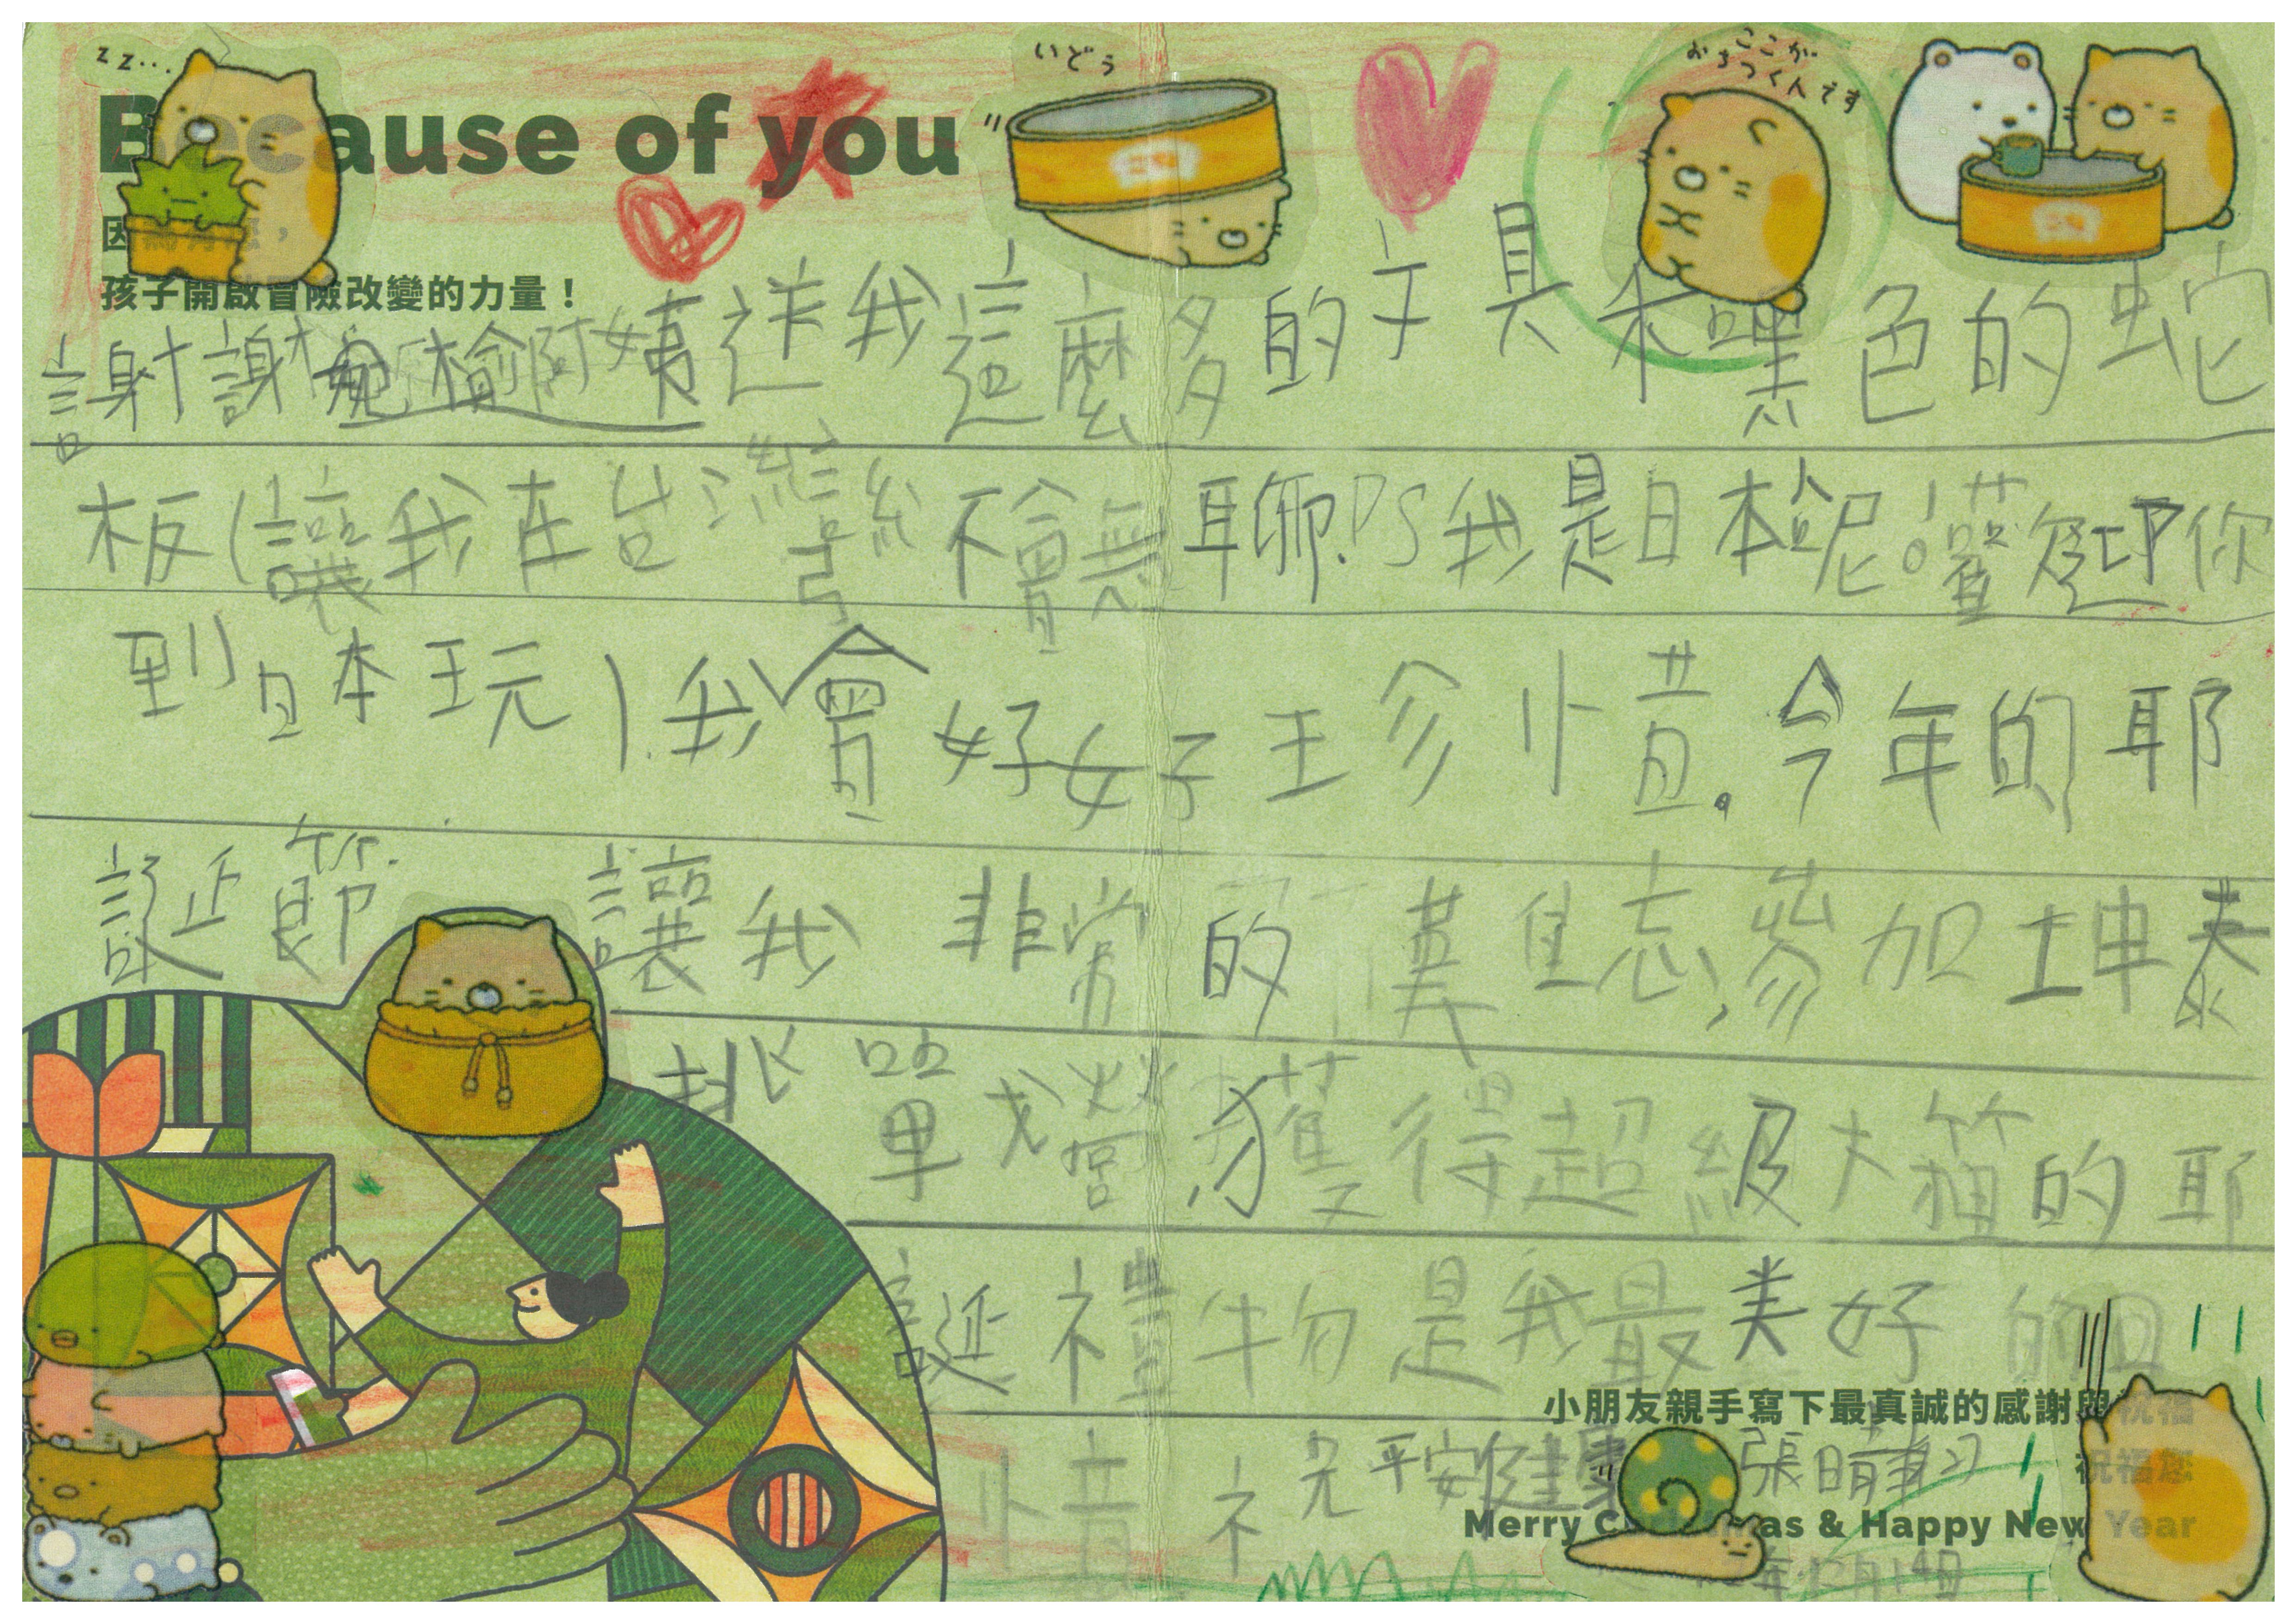 zz...
いどぅ
ここが
おちつくんです
Because of you
因為有您，
孩子開啟冒險改變的力量！
謝謝榆阿姨送我這麼多的文具和黑色的蛇
板(讓我在台灣不會無聊.PS我是日本 尼。歡迎你
到日本玩).我會好好珍惜。今年的耶
誕節 讓我 非常的 難忘,參加坤泰
挑單戈營獲得超級大箱的耶
誕禮物是我最美好的回
憶 祝平安健康 張晴
小朋友親手寫下最真誠的感謝與祝福
祝福您
Merry Christmas & Happy New Year
年12月14日